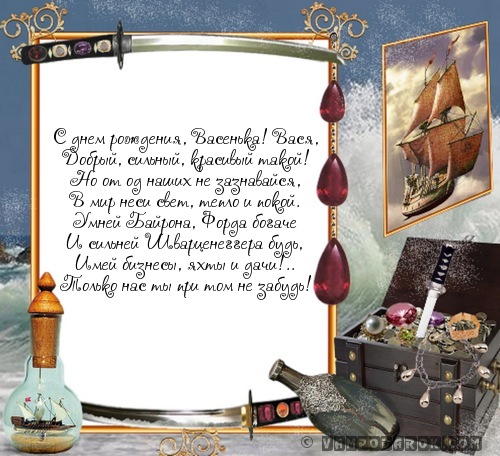 С днем рождения, Васенька! Вася,
Добрый, сильный, красивый такой!
Но от од наших не зазнавайся,
В мир неси свет, тепло и покой.
Умней Байрона, Форда богаче
И сильней Шварценеггера будь,
Имей бизнесы, яхты и дачи!..
Только нас ты при том не забудь!
© VAMPODAROK.COM